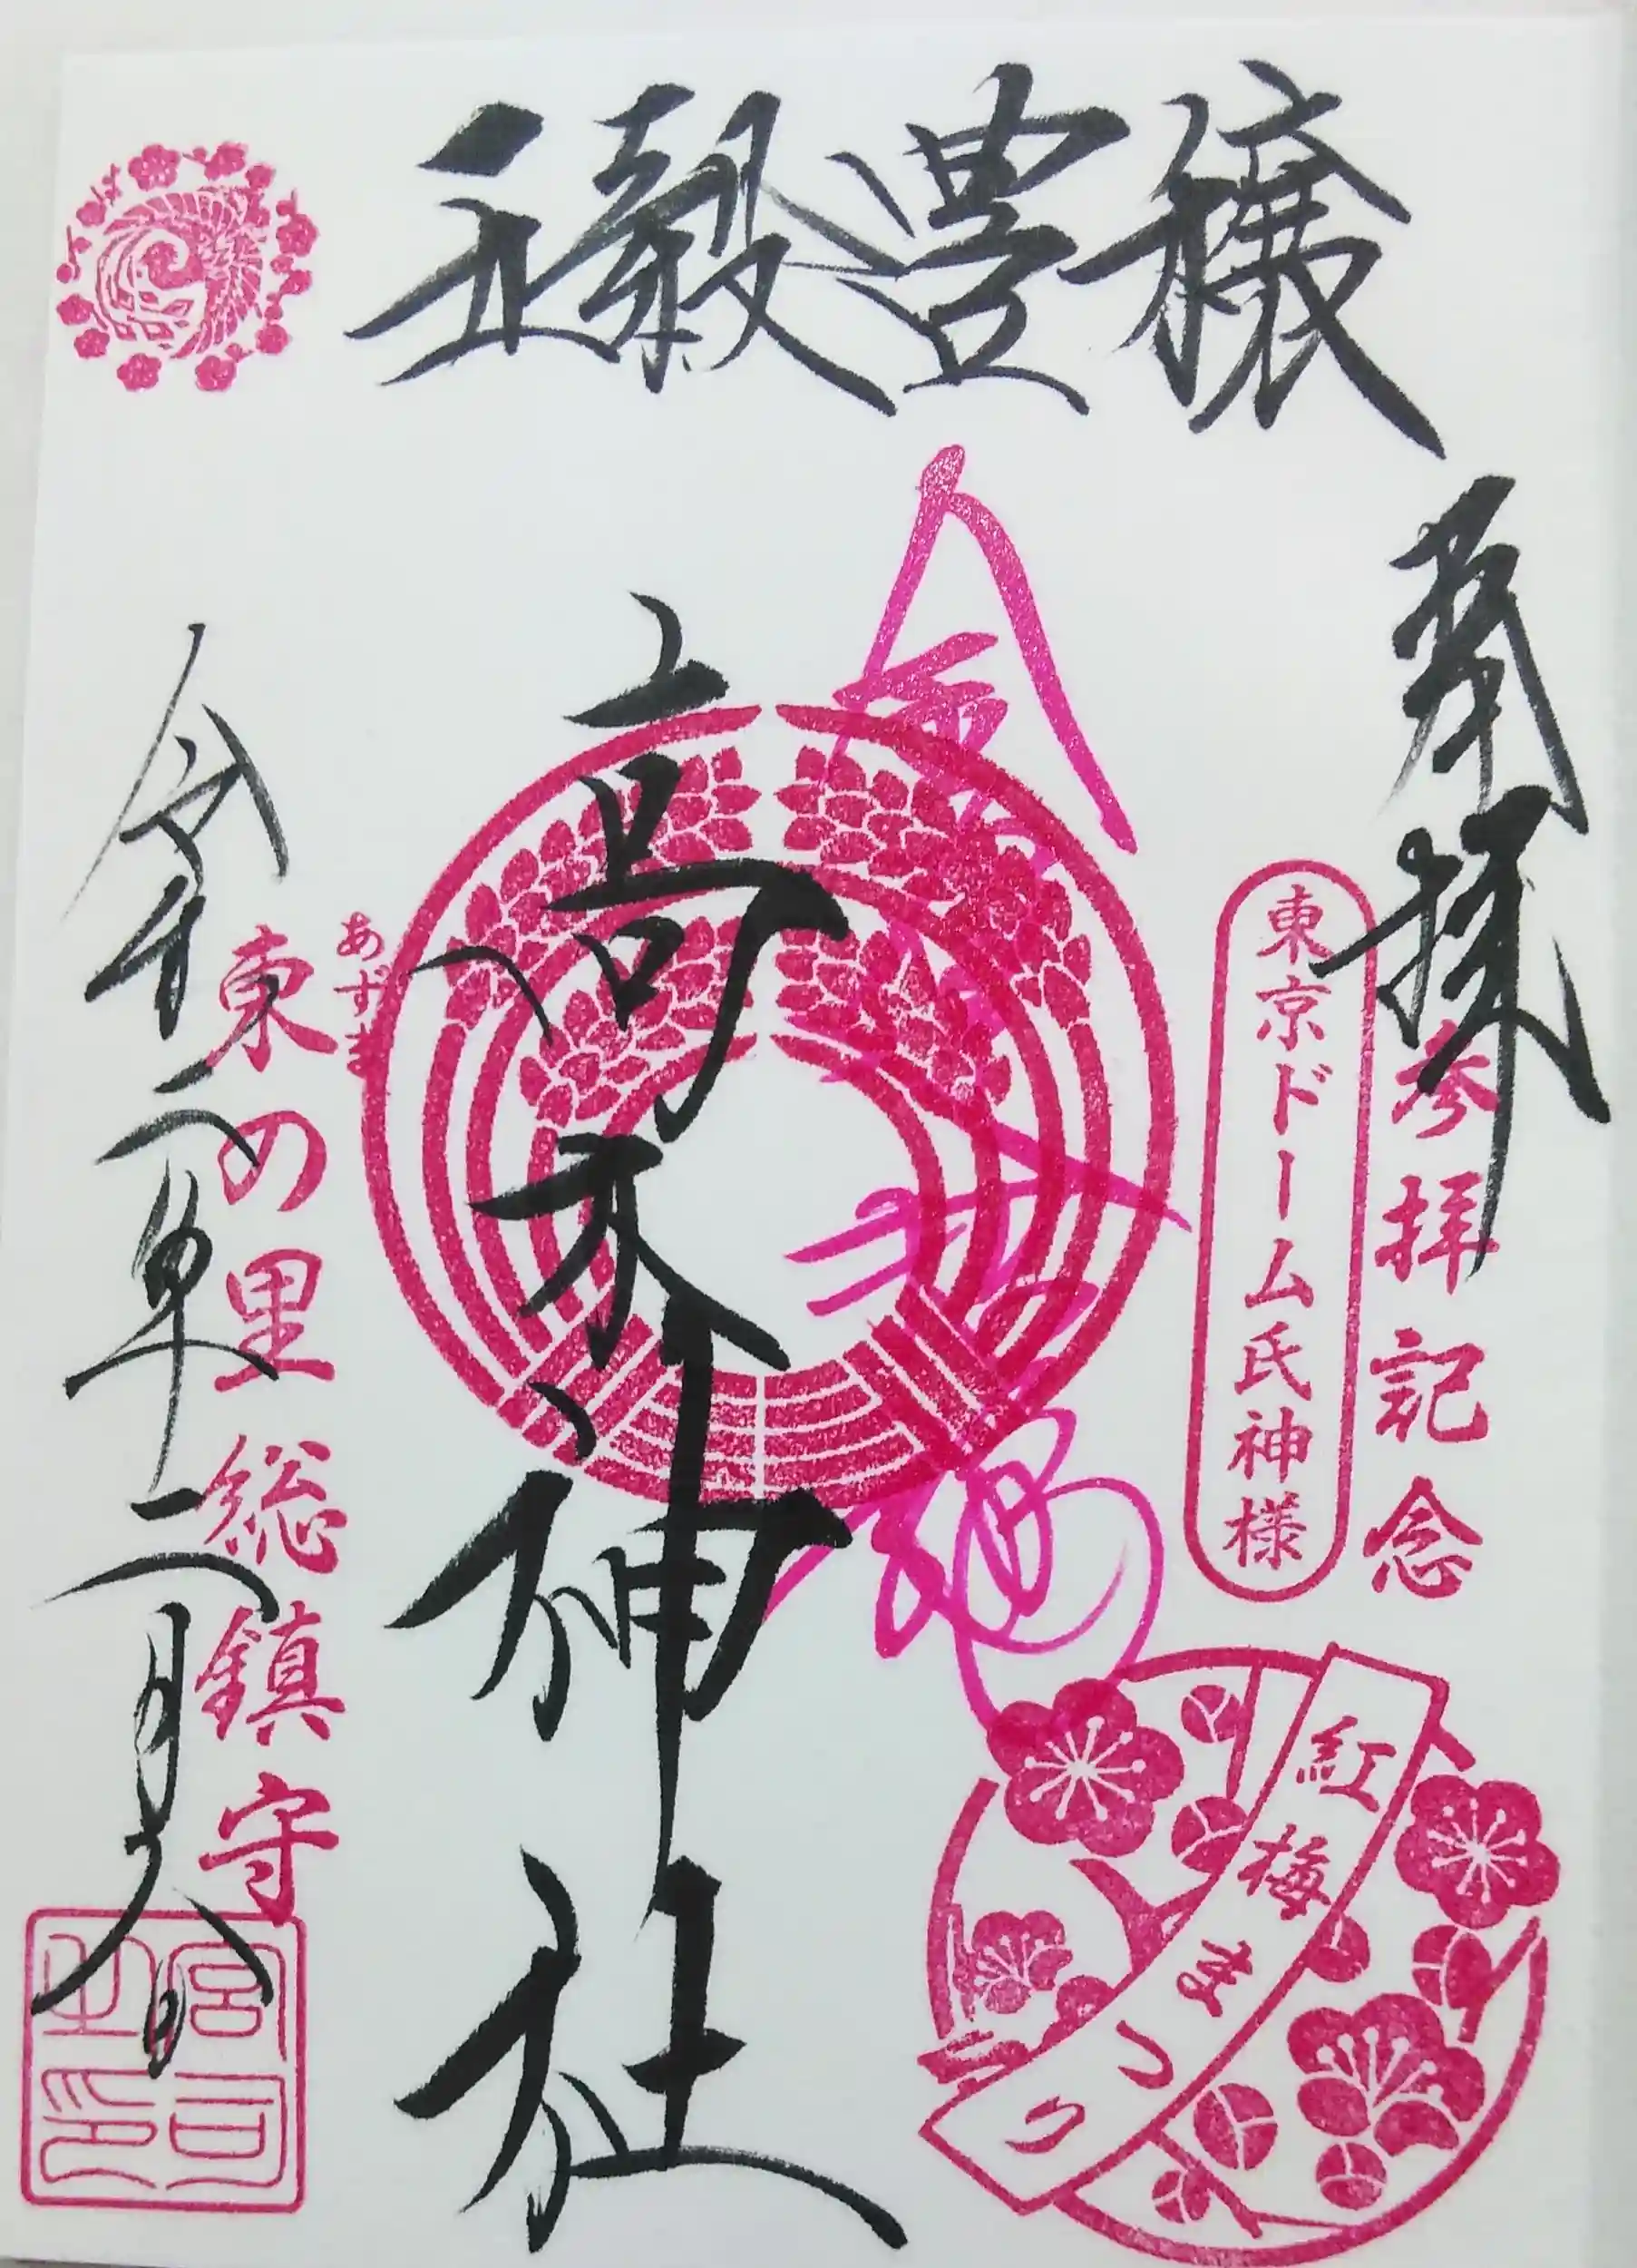 五穀豊穣
奉拝
参拝記念
東京ドーム氏神様
高木神社
あずま
東の里総鎮守
令和二年二月八日
宮司之印
紅梅まつり